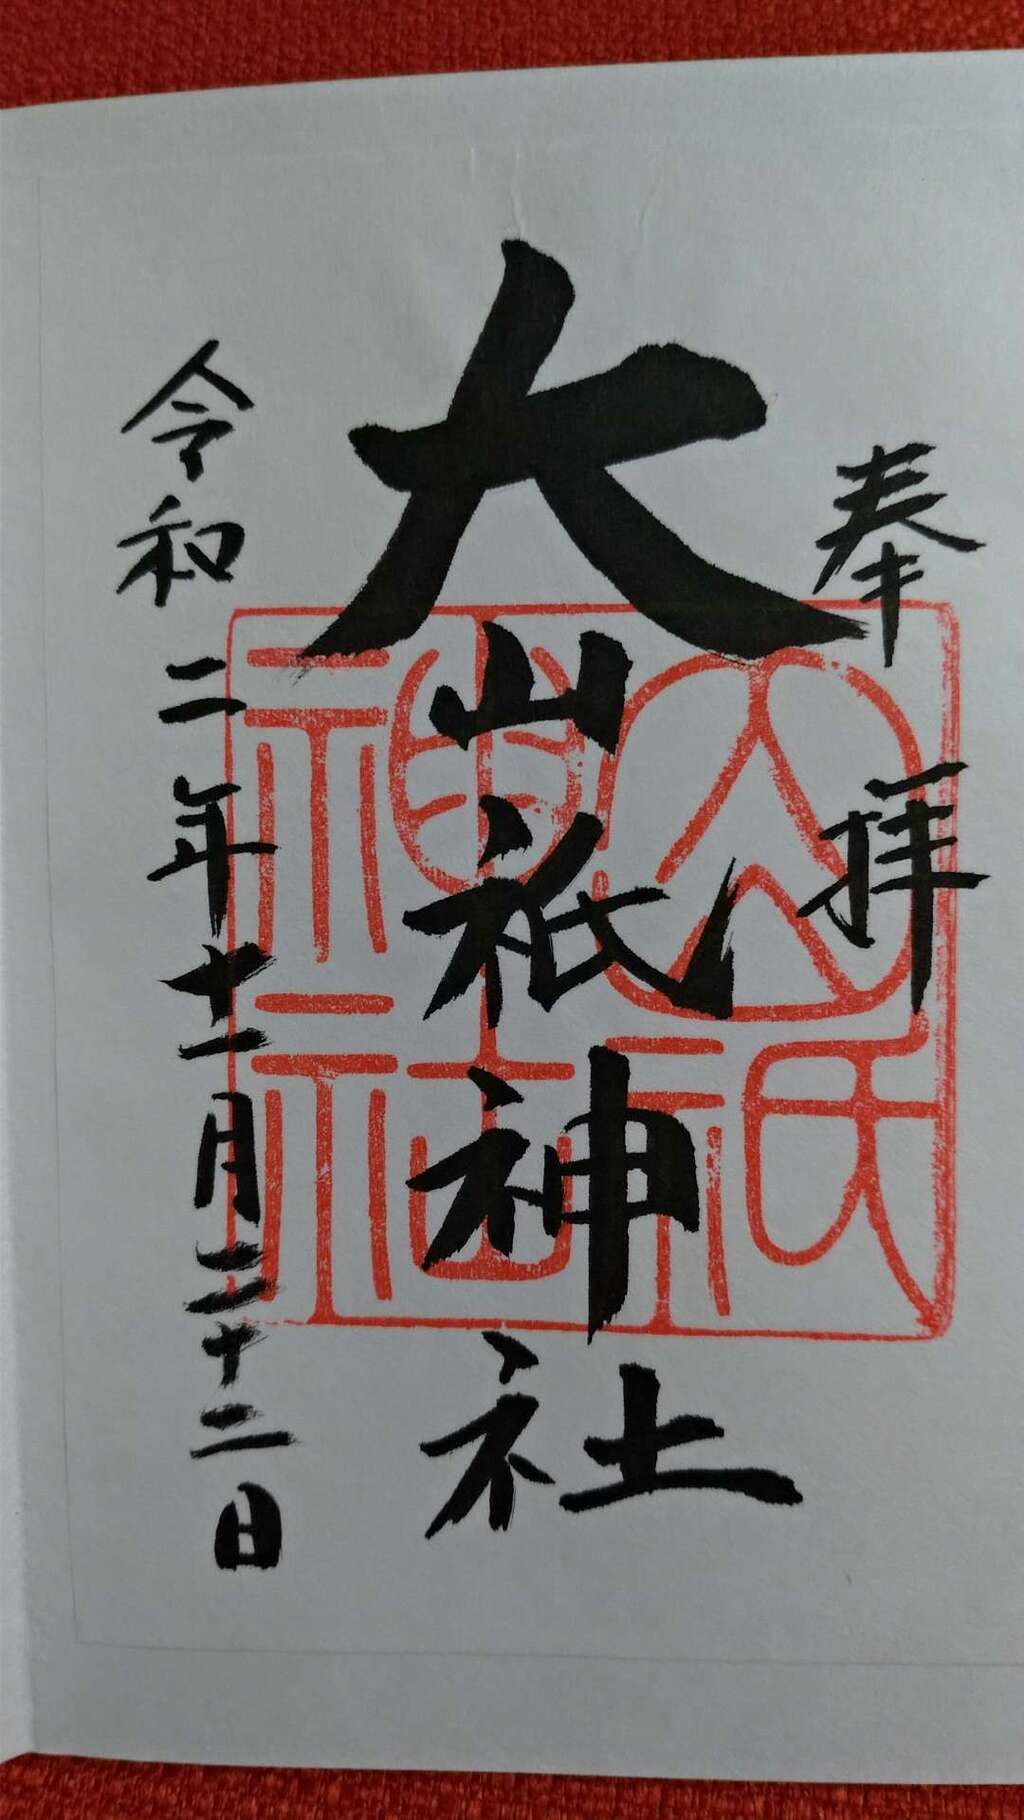 奉拝
大山祇神社
令和二年十一月二十二日
大山祇
神社